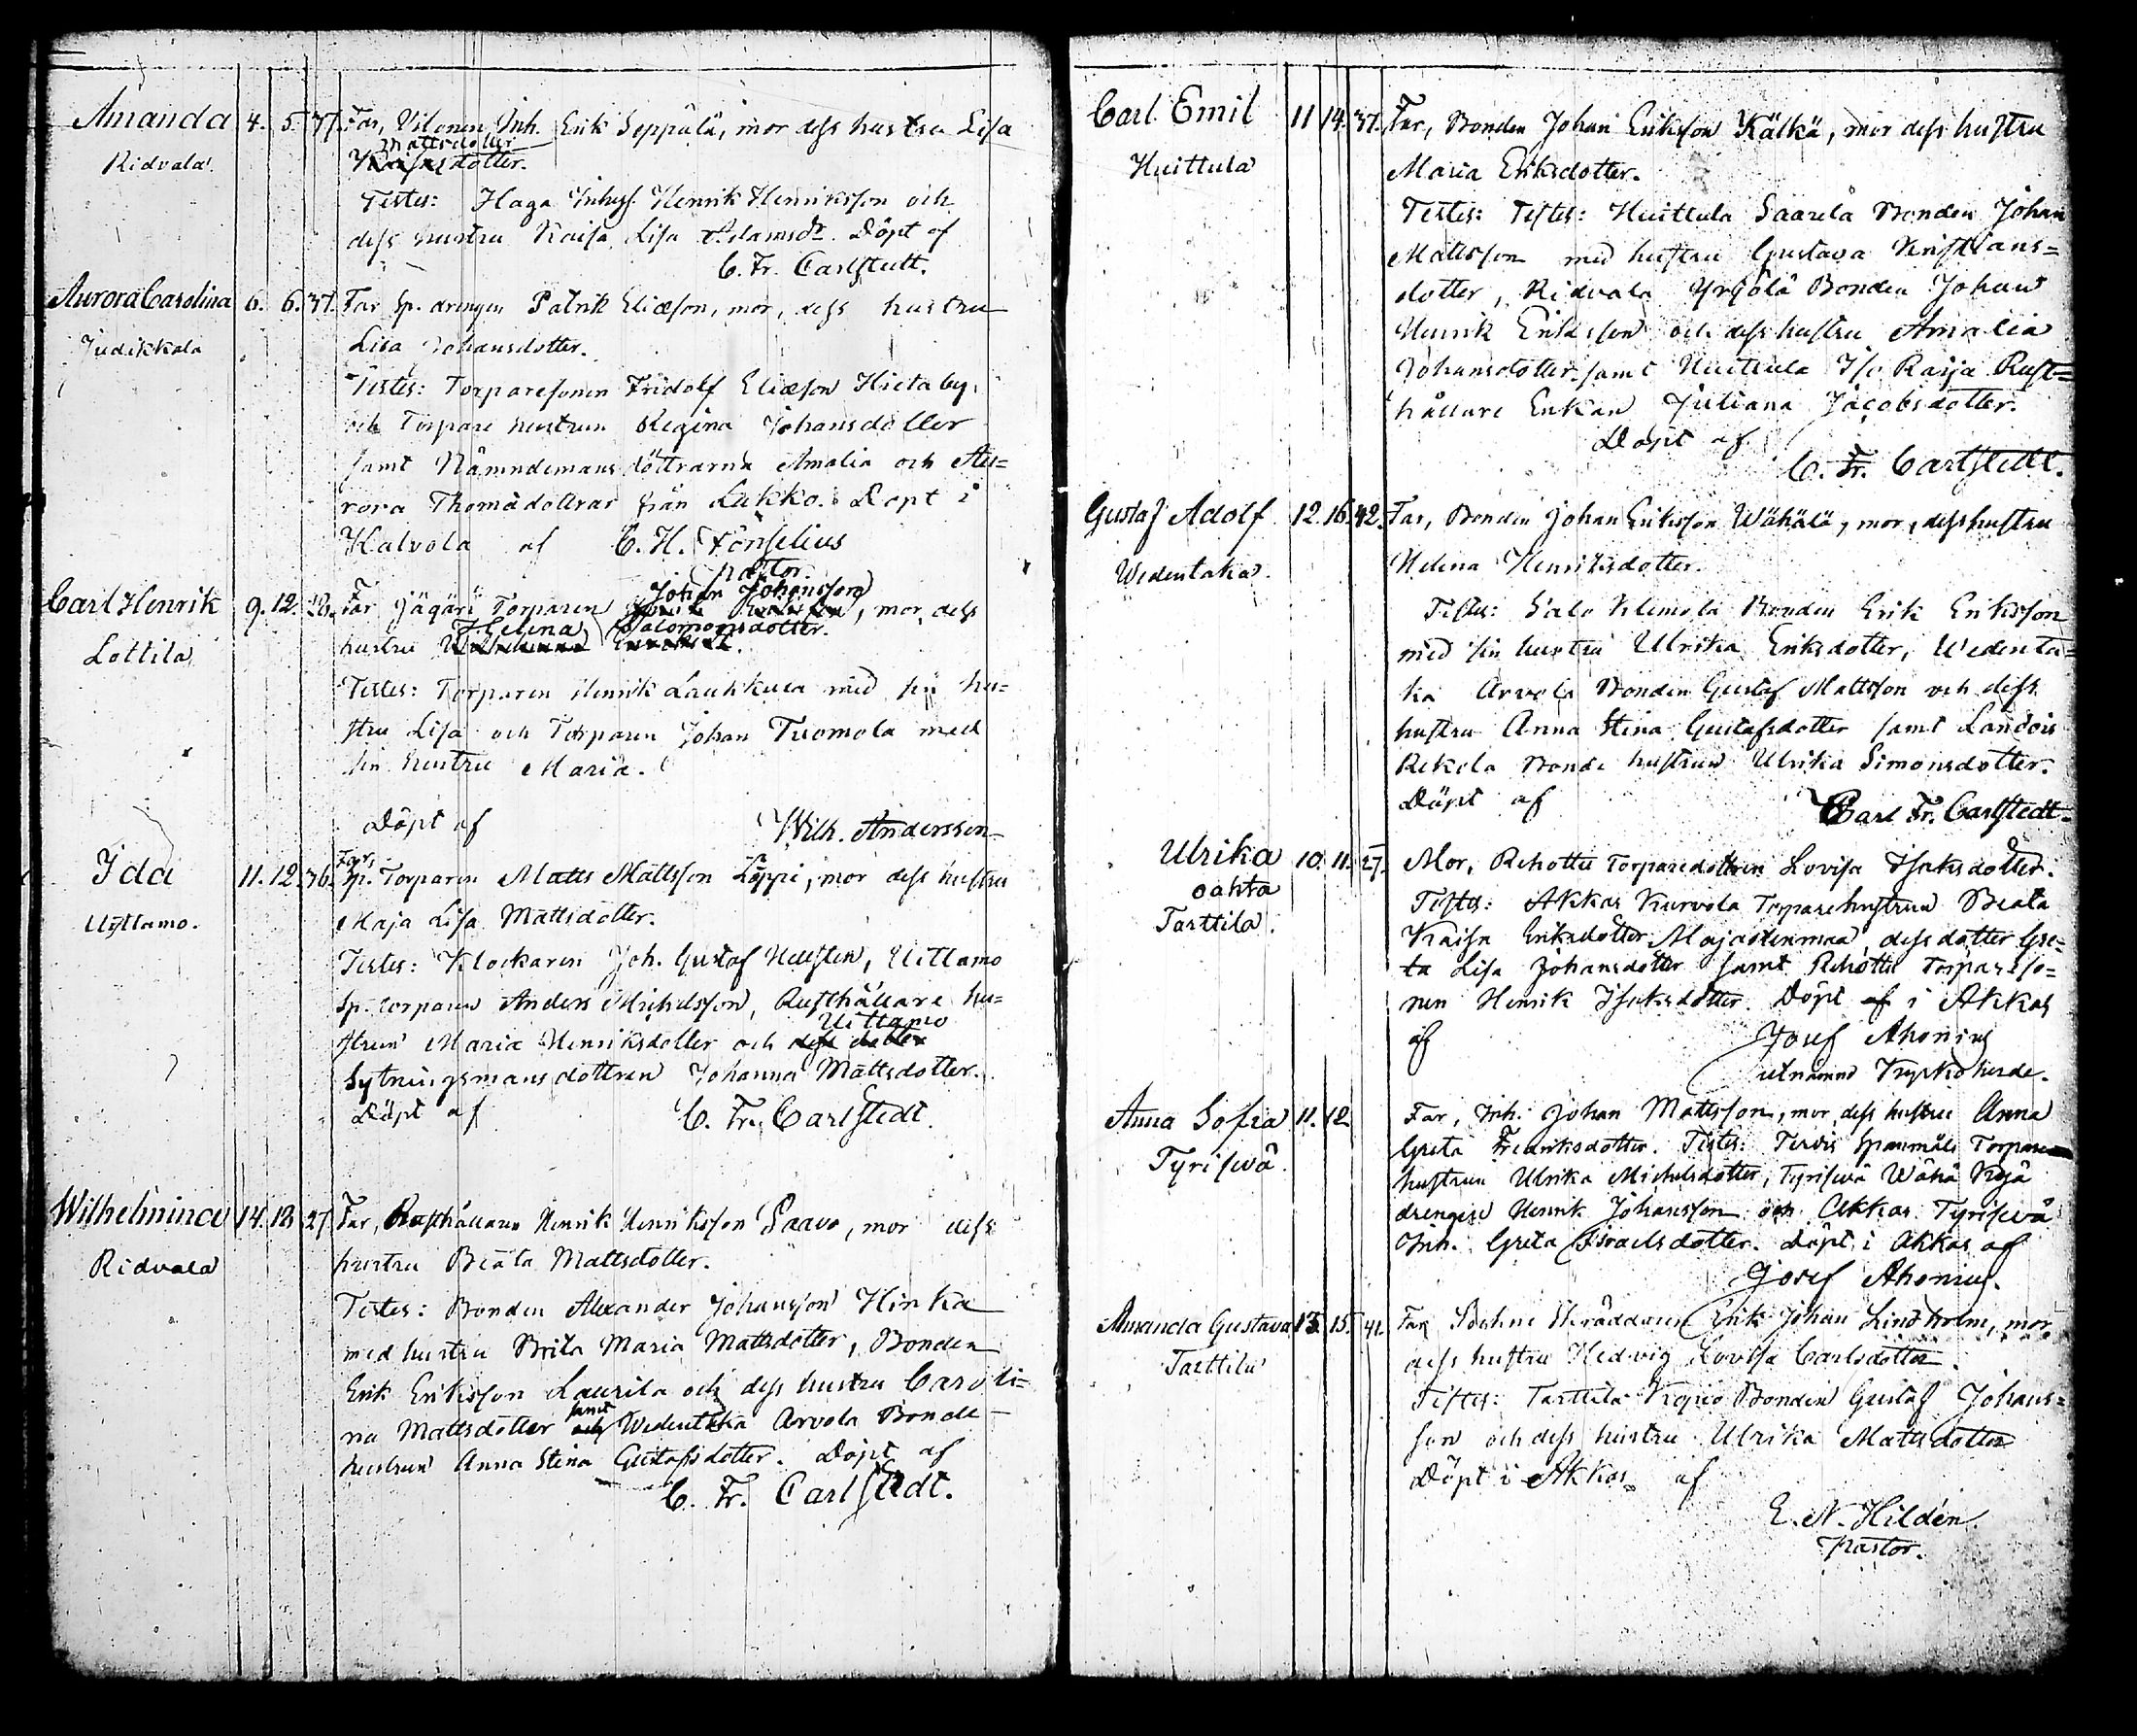 Amanda 4. 5. 37. Far, Vilonen Inh. Erik Seppälä, mor dess hustru Lisa
Mattsdotter
Ridvala. dotter.
Testes: Haga Inhys. Henrik Henriksson och
dess hustru Kaisa Lisa Adamsdr. Döpt af
C. Fr. Carlstedt.
Aurora Carolina 6. 6. 37. Far Sp. drengen Patrik Eliæson, mor, dess hustru
Judikkala Lisa Johansdotter.
Testes: Torparesonen Fridolf Eliæson Hietaby,
och Torpare hustrun Regina Johansdotter
samt Nämndemans döttrarna Amalia och Au=
rora Thomädottrar från Lukko. Döpt i
Kalvola af C. H. Fonselius
pastor.
Johan Johansson
Carl Henrik 9. 12. 28. Far Jägäri Torparen , mor dess
Helena Salomonsdotter.
Lottila hustru
Testes: Torparen Henrik Laukkula med sin hu=
stru Lisa och Torparen Johan Tuomola med
sin hustru Maria.
Döpt af Wilh. Andersson
Far,
Ida 11. 12. 36. Sp. Torparen Matts Mattsson Loppi, mor dess hustru
Uittamo. Maja Lisa Mattsdotter.
Testes: Klockaren Joh. Gustaf Hellsten, Uittamo
Sp. torparen Anders Michelsson, Rusthållare hu=
Uittamo
strun Maria Henriksdotter och dess dotter
Sytningsmans dottren Johanna Mattsdotter.
Döpt af C. Fr. Carlstedt.
Wilhelmina 14. 18. 27. Far, Rusthållaren Henrik Henriksson Paavo, mor dess
Ridvala hustru Beata Mattsdotter.
Testes: Bonden Alexander Johansson Hinka
med hustru Brita Maria Mattsdotter, Bonden
Erik Eriksson Laurila och dess hustru Caroli=
samt
na Mattsdotter och Wedentaka Arvola Bonde
hustrun Anna Stina Gustafsdotter. Döpt af
C. Fr. Carlstedt.
Carl Emil 11 14. 37. Far, Bonden Johan Eriksson Kälkä, mor dess hustru
Huittula Maria Eriksdotter.
Testes: Testes: Huittula Saarela Bonden Johan
Mattsson med hustru Gustava Kristians=
dotter, Ridvala Yrjölä Bonden Johan
Henrik Eriksson och dess hustru Amalia
Johansdotter samt Huittula Iso Raija Rust=
hållare Enkan Juliana Jacobsdotter.
Döpt af
C. Fr. Carlstedt.
Gustaf Adolf 12. 16. 42. Far, Bonden Johan Eriksson Wähälä, mor, dess hustru
Wedentaka. Helena Henriksdotter.
Testes: Salo Klemola Bonden Erik Eriksson
med sin hustru Ulrika Eriksdotter, Wedenta=
ka Arvola Bonden Gustaf Mattsson och dess
hustru Anna Stina Gustafsdotter samt Landois
Rekola Bonde hustrun Ulrika Simonsdotter.
Döpt af Carl Fr. Carlstedt.
Ulrika 10. 11. 27. Mor, Rehottu Torparedottren Lovisa Isaksdotter.
oähta Testes: Akkas Kurvola Torparehustrun Beata
Tarttila. Kaisa Eriksdotter Majastenmaa, dess dotter Gre=
ta Lisa Johansdotter samt Rehottu Torpareso=
nen Henrik Isaksdotter. Döpt af i Akkas
af Josef Ahonius
utnämnd Kyrkoherde.
Anna Sofia 11. 12 Far, Inh. Johan Mattsson, mor dess hustru Anna
Greta Fredriksdotter. Testes: Tervis Torpare
Tyriseva. hustrun Ulrika Michelsdotter, Tyrisevä Wähä
drengen Henrik Johansson och Akkas Tyrisevä
Inh. Greta Israelsdotter. Döpt i Akkas af
Josef Ahonius.
Amanda Gustava 13. 15. 41. Far Sockne Skräddaren Erik Johan Lindholm, mor
Tarttila dess hustru Hedvig Lovisa Carlsdotter.
Testes: Tarttila Kopio Bonden Gustaf Johans=
son och dess hustru Ulrika Mattsdotter
Döpt i Akkas af
E. N. Hildén.
Pastor.